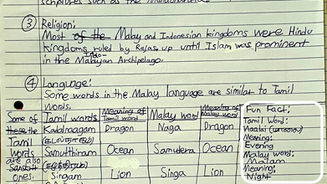 scriptures such as the
③ Religion:
Most of the Malay and Indonesian kingdoms were Hindu
kingdoms ruled by Rajas up until Islam was prominent
in the Indo-Malayan Archipelago.
④ Language:
Some words in the Malay language are similar to Tamil
words.
Some of these the Tamil words are also Sanskrit ones
Tamil words Meaning of Tamil word Malay word Meaning of Malay word
Kadalnaagam Dragon Naga Dragon
Samuthiram Ocean Samudera Ocean
Singam Lion Singa Lion
Fun Fact:
Tamil word:
Maalai
Meaning:
Evening
Malay word:
Malam
Meaning:
Night